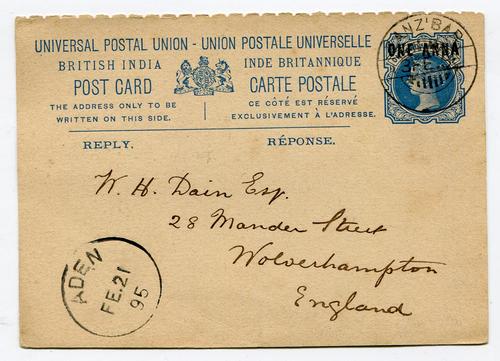 UNIVERSAL POSTAL UNION - UNION POSTALE UNIVERSELLE
BRITISH INDIA
INDE BRITANNIQUE
POST CARD
CARTE POSTALE
THE ADDRESS ONLY TO BE
WRITTEN ON THIS SIDE.
CE CÔTÉ EST RÉSERVÉ
EXCLUSIVEMENT À L'ADRESSE.
REPLY.
RÉPONSE.
ANZIBAR
ONE ANNA
W. H. Dain Esq.
28 Mander Street
Wolverhampton
England
ADEN
FE.21
95